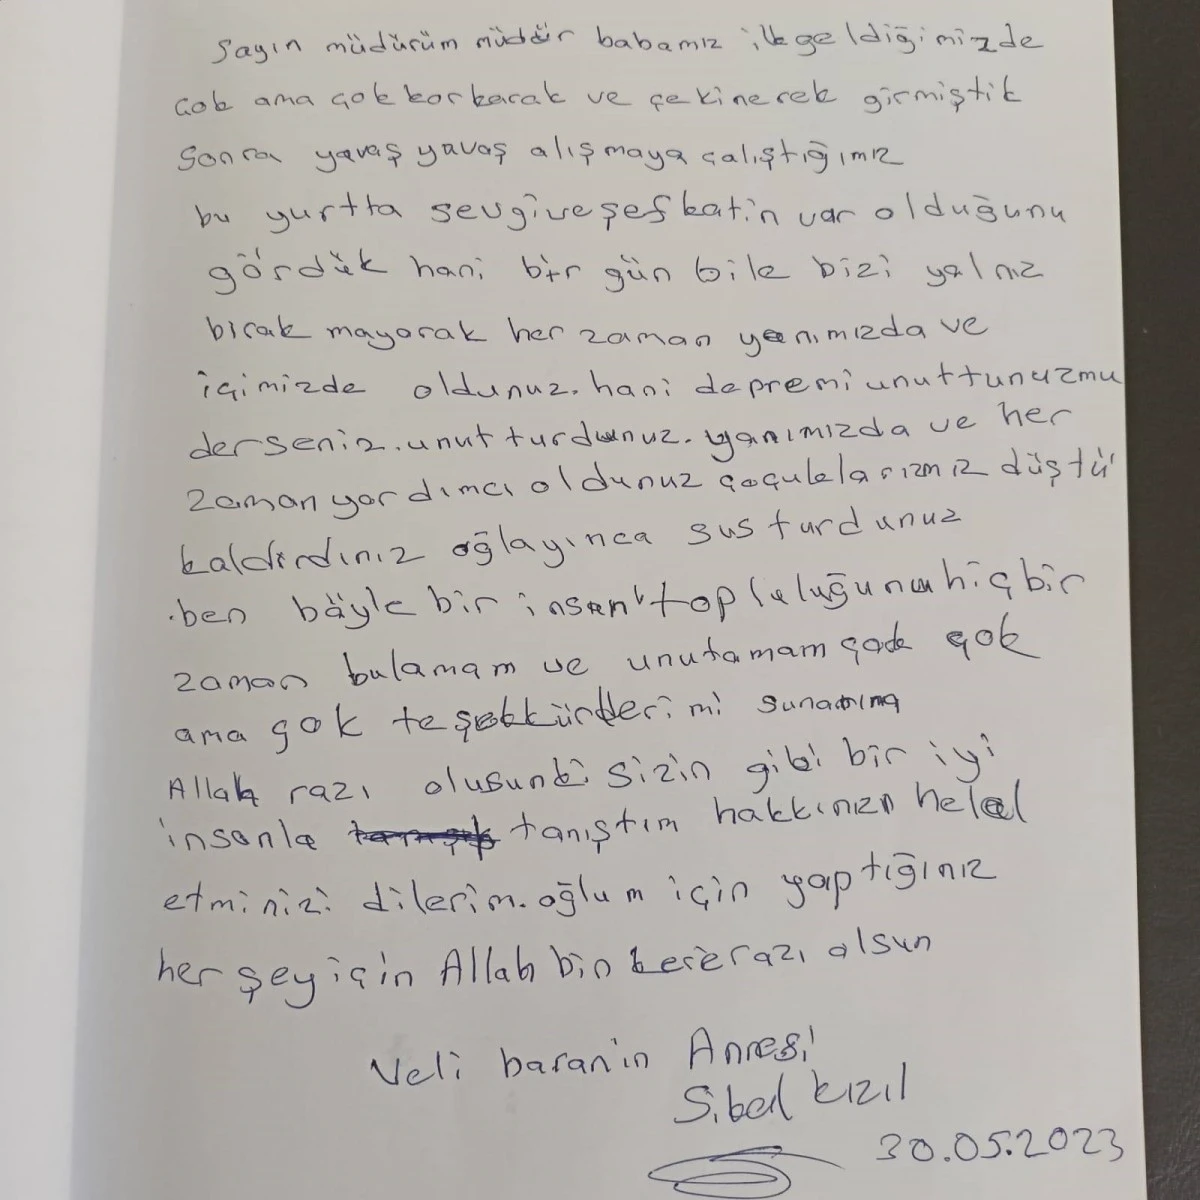 Sayın müdürüm müdür babamız ilk geldiğimizde
çok ama çok korkarak ve çekinerek girmiştik
Sonra yavaş yavaş alışmaya çalıştığımız
bu yurtta sevgi ve şefkatin var olduğunu
gördük hani bir gün bile bizi yalnız
bırak mayarak her zaman yanımızda ve
içimizde oldunuz. hani depremi unuttunuzmu
derseniz. unut turdunuz. yanımızda ve her
zaman yardımcı oldunuz çoçuklarızmız düştü
kaldırdınız ağlayınca sus turdunuz
.ben böyle bir insan topluluğunu hiç bir
zaman bulamam ve unutamam çok çok
ama çok teşekkürlerimi sunarım
Allah razı olusunki sizin gibi bir iyi
insanla tanıştım hakkınızı helal
etminizi dilerim. oğlum için yaptığınız
her şey için Allah bin kere razı olsun
Veli baran'in Annesi
Sibel kızıl
30.05.2023